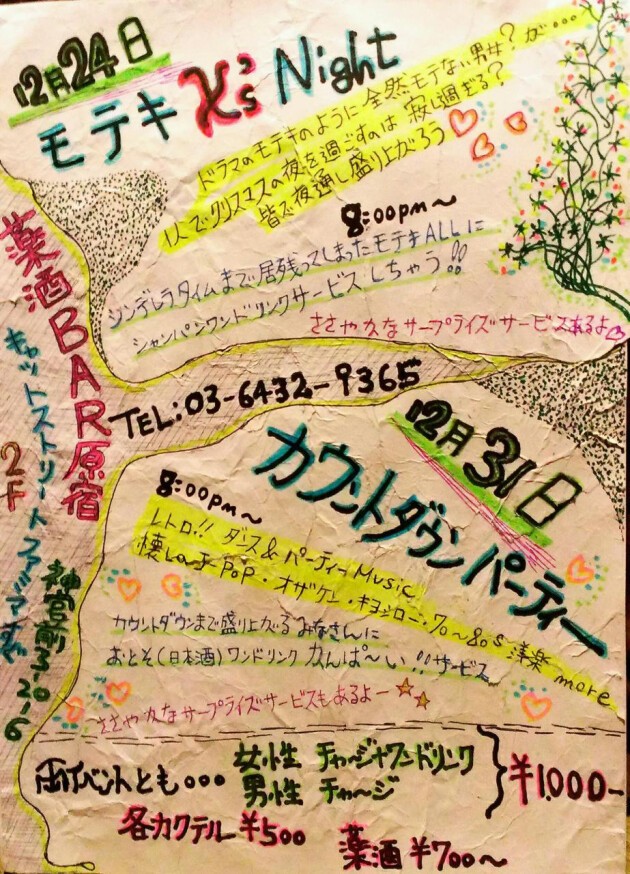 12月24日
モテキ X's Night
ドラマのモテキのように全然モテない男女?が...
1人でクリスマスの夜を過ごすのは寂し過ぎる?
皆で夜通し盛り上がろう
8:00pm〜
シンデレラタイムまで居残ってしまったモテキALLに
シャンパンワンドリンクサービスしちゃう!!
ささやかなサープライズサービスあるよ
薬酒BAR原宿
キャットストリート
2F
神宮前
TEL:03-6432-9365
12月31日
カウントダウンパーティー
8:00pm〜
レトロ!! ダンス&パーティーMusic
懐しのJ-POP・オザケン・キヨシロー・70〜80s 洋楽 more
カウントダウンまで盛り上がるみなさんに
おとそ(日本酒)ワンドリンク かんぱ〜い!!サービス
ささやかなサープライズサービスもあるよー☆☆
両イベントとも...
女性 チャージ+ワンドリンク
男性 チャージ
¥1.000-
各カクテル ¥500
薬酒 ¥700〜